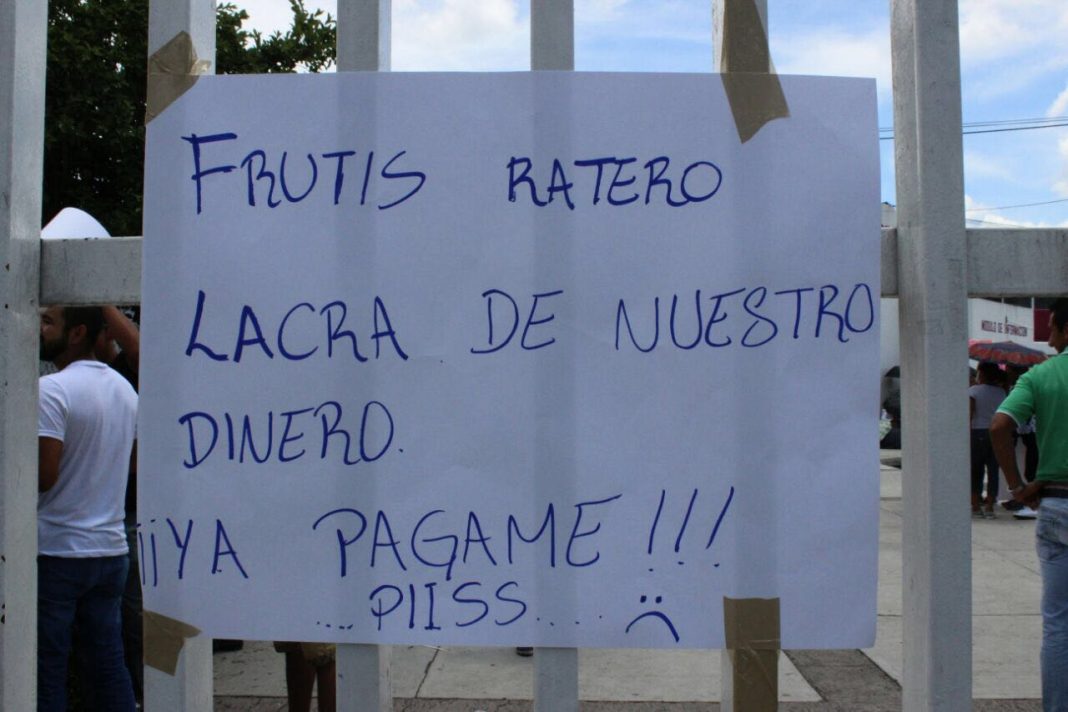 FRUTIS RATERO
LACRA DE NUESTRO
DINERO.
¡¡YA PAGAME!!!
....PIISS.... :(
MODULO DE INFORMACION